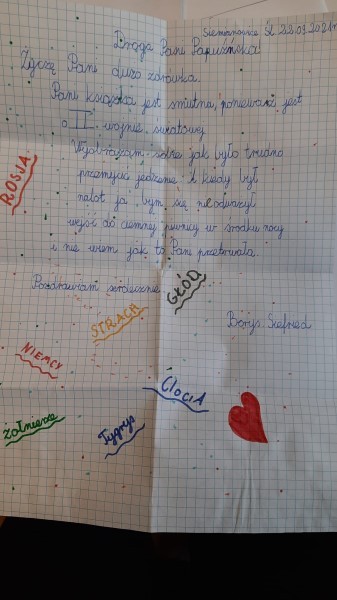 Siemianowice Śl 22.03.2021r
Droga Pani Papuzińska!
Życzę Pani dużo zdrówka.
Pani książka jest smutna, ponieważ jest
o II wojnie światowej.
Wyobrażam sobie jak było trudno
przemycić jedzenie. A kiedy był
nalot ja bym się nie odważył
wejść do ciemnej piwnicy w środku nocy
i nie wiem jak to Pani przetrwała.
Pozdrawiam serdecznie
Borys Siefried
ROSJA
GŁÓD
STRACH
NIEMCY
CIOCIA
żołnierze
Tygrys